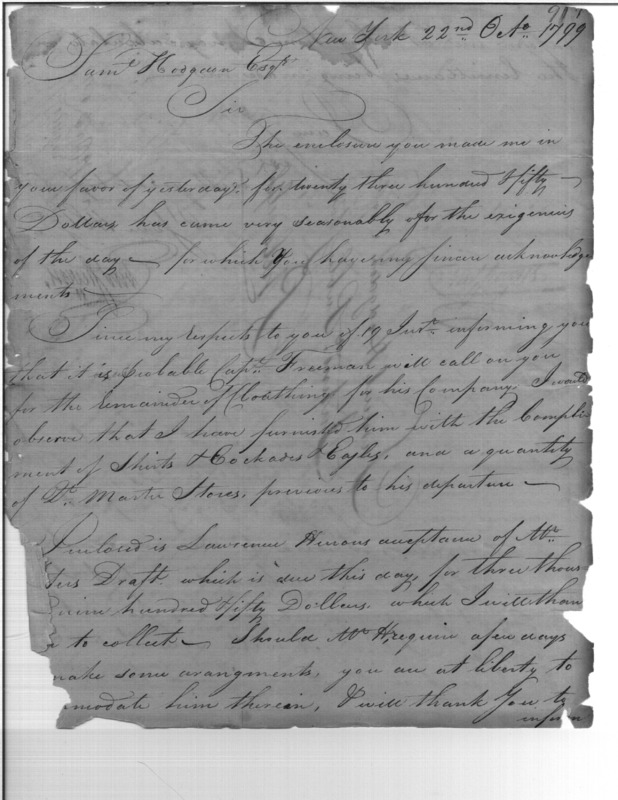 New York 22nd Octo. 1799
Saml. Hodgdon Esqr.
Sir
The enclosure you made me in
your favor of yesterday, for twenty three hundred & fifty
Dollars has came very seasonably for the exigenies
of the day — for which You have my sincere acknowledge
ments —
Since my respects to you of 19 Inst. informing you
that it is probable Capt. Freeman will call on you
for the remainder of Cloathing for his Company, I would
observe that I have furnished him with the Compli
ment of Shirts & Cockades & Eagles, and a quantity
of Qr. Master Stores, previous to his departure —
Enclosed is Lawrence acceptance of Mr.
Draft, which is due this day, for three thous
nine hundred & fifty Dollars, which I will than
to collect — Should Mr. H, require a few days
make some arangments, you are at liberty to
modate him therein, & will thank You to
inform